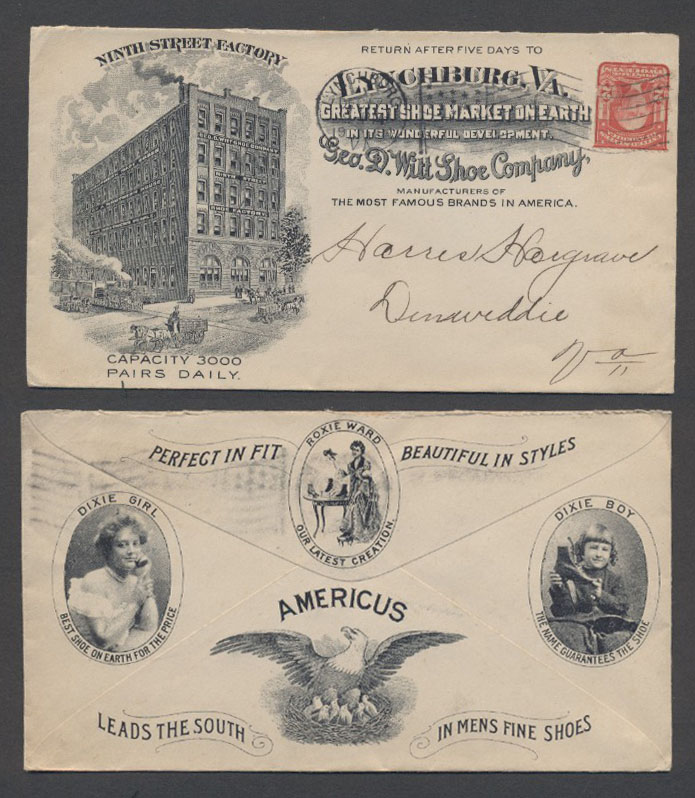 NINTH STREET FACTORY
CAPACITY 3000
PAIRS DAILY.
RETURN AFTER FIVE DAYS TO
LYNCHBURG, VA.
GREATEST SHOE MARKET ON EARTH
IN ITS WONDERFUL DEVELOPMENT.
Geo. D. Witt Shoe Company,
MANUFACTURERS OF
THE MOST FAMOUS BRANDS IN AMERICA.
Harris Hargrave
Dinwiddie
Va
PERFECT IN FIT
ROXIE WARD
OUR LATEST CREATION.
BEAUTIFUL IN STYLES
DIXIE GIRL
BEST SHOE ON EARTH FOR THE PRICE
DIXIE BOY
THE NAME GUARANTEES THE SHOE
AMERICUS
LEADS THE SOUTH
IN MENS FINE SHOES